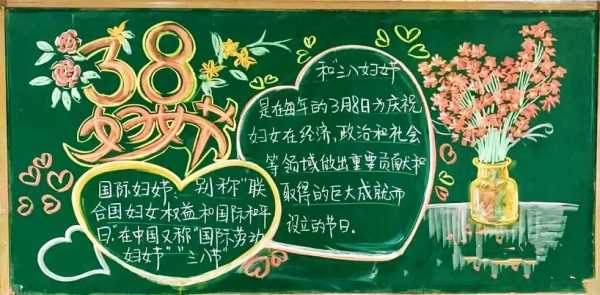 38
妇女节
国际妇女节、别称"联
合国妇女权益和国际和平
日"在中国又称"国际劳动
妇女节""三八节"
和"三八妇女节"
是在每年的3月8日为庆祝
妇女在经济,政治和社会
等领域做出重要贡献和
取得的巨大成就而
设立的节日。